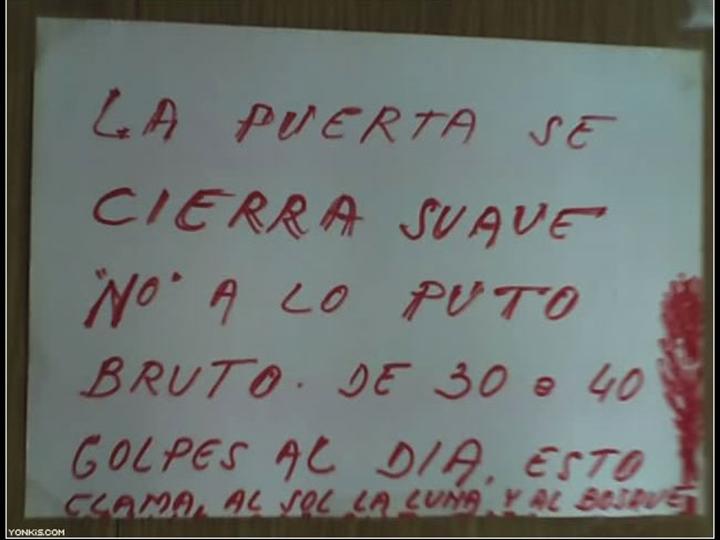 LA PUERTA SE
CIERRA SUAVE
"NO" A LO PUTO
BRUTO. DE 30 o 40
GOLPES AL DIA. ESTO
CLAMA, AL SOL LA LUNA, Y AL BOSQUE
YONKIS.COM